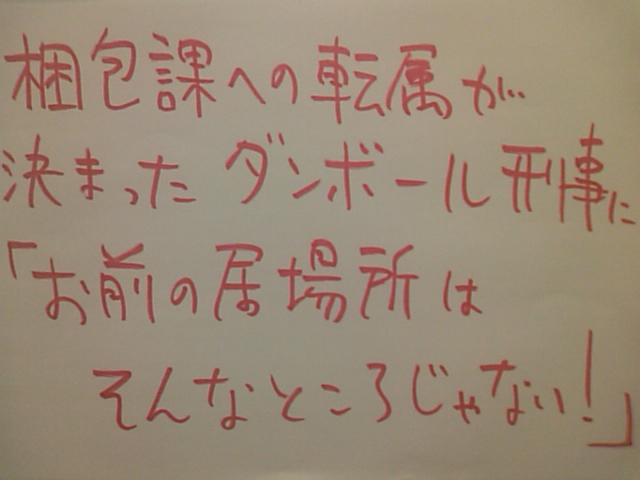 梱包課への転属が
決まったダンボール刑事に
「お前の居場所は
そんなところじゃない!」